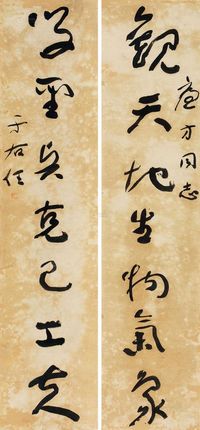 觀天地生物氣象
唐方同志
學聖賢克己工夫
于右任